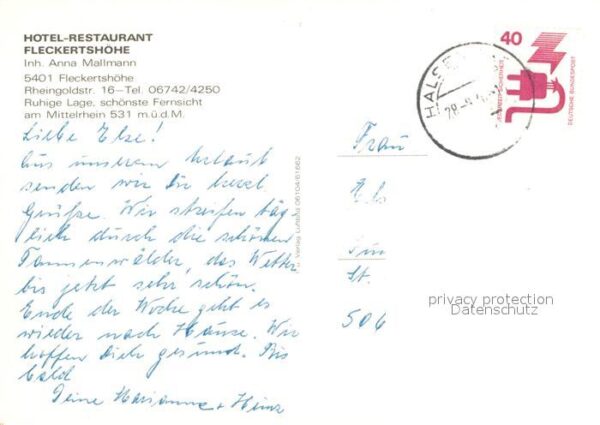 HOTEL-RESTAURANT
FLECKERTSHÖHE
Inh. Anna Mallmann
5401 Fleckertshöhe
Rheingoldstr. 16—Tel. 06742/4250
Ruhige Lage, schönste Fernsicht
am Mittelrhein 531 m.ü.d.M.
Liebe Else!
Aus unserem Urlaub
senden wir Dir herzl
Grüße. Wir streifen täg-
lich durch die schönen
Tannenwälder, das Wetter
bis jetzt sehr schön.
Ende der Woche geht es
wieder nach Hause. Wir
hoffen Dich gesund. Bis
bald
Deine Marianne + Heinz
Verlag Luftbild 06104/61662
40
DEUTSCHE BUNDESPOST
HALSE
Frau
Els
St.
506
privacy protection
Datenschutz